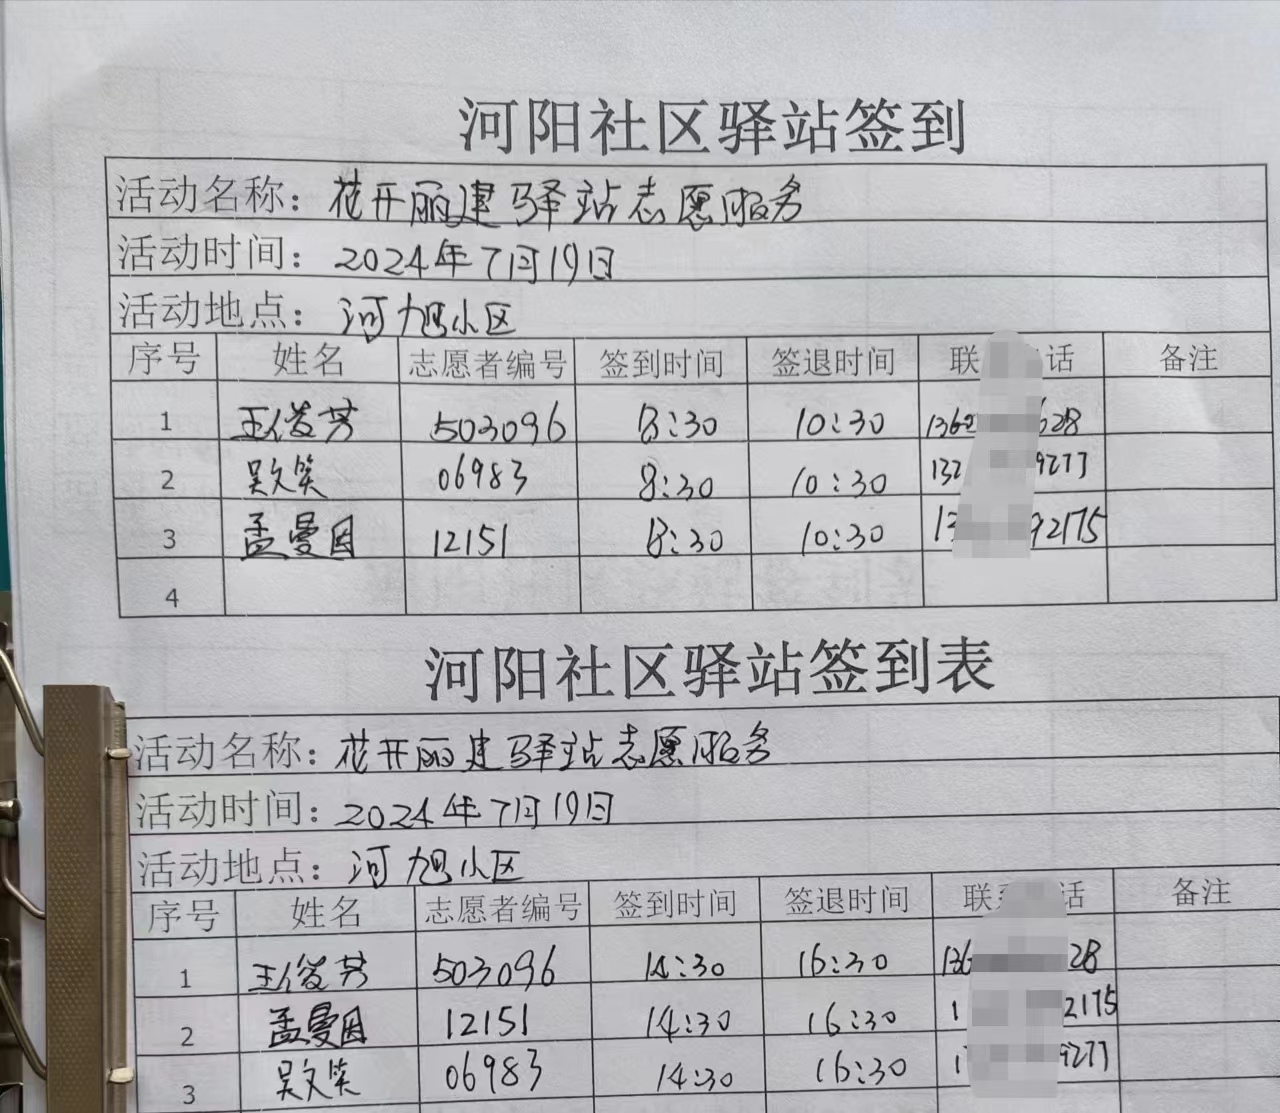 河阳社区驿站签到
活动名称：花开丽建驿站志愿服务
活动时间：2024年7月19日
活动地点：河旭小区
序号 姓名 志愿者编号 签到时间 签退时间 联 话 备注
1 王俊芳 503096 8:30 10:30 1360 628
2 吴文笑 06983 8:30 10:30 132 9277
3 孟曼因 12151 8:30 10:30 13 92175
4
河阳社区驿站签到表
活动名称：花开丽建驿站志愿服务
活动时间：2024年7月19日
活动地点：河旭小区
序号 姓名 志愿者编号 签到时间 签退时间 联 话 备注
1 王俊芳 503096 14:30 16:30 136 28
2 孟曼因 12151 14:30 16:30 1 2175
3 吴文笑 06983 14:30 16:30 1 9277